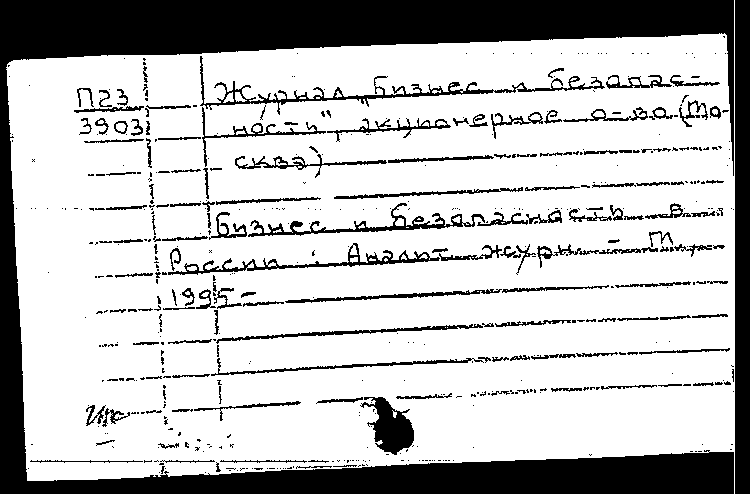 П23
3903
Журнал „Бизнес и безопас-
ность", акционерное о-во (Мо-
сква)
Бизнес и безопасность в
России : Аналит. журн. - М.,
1995-